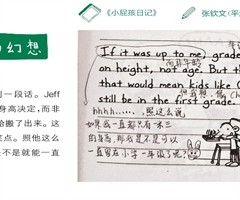 《小屁孩日记》
张钦文(平
幻想
If it was up to me, grade
on height, not age. But th
that would mean kids like C
still be in the first grade.
hhhh……，我
如果我一直都只有一米三
的身高，那我是不是可以
一直留在小学一年级了呢？
一段话。Jeff
身高决定，而非
给搬了出来。这
笑点。照他这么
不是就能一直